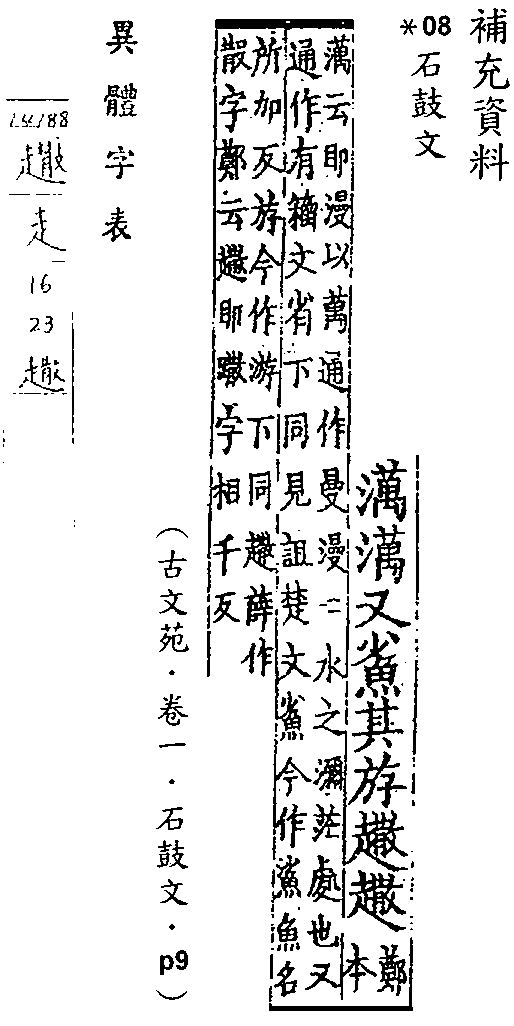 補充資料
*08 石鼓文
澫澫又其斿 鄭本
澫云即漫以萬通作曼漫二水之瀰茫處也又
通作有籀文省下同見詛楚文今作鯊魚名
所加反斿今作游下同薛作
散字鄭云即字相千反
異體字表
（古文苑．卷一．石鼓文．p9）
走
16
23